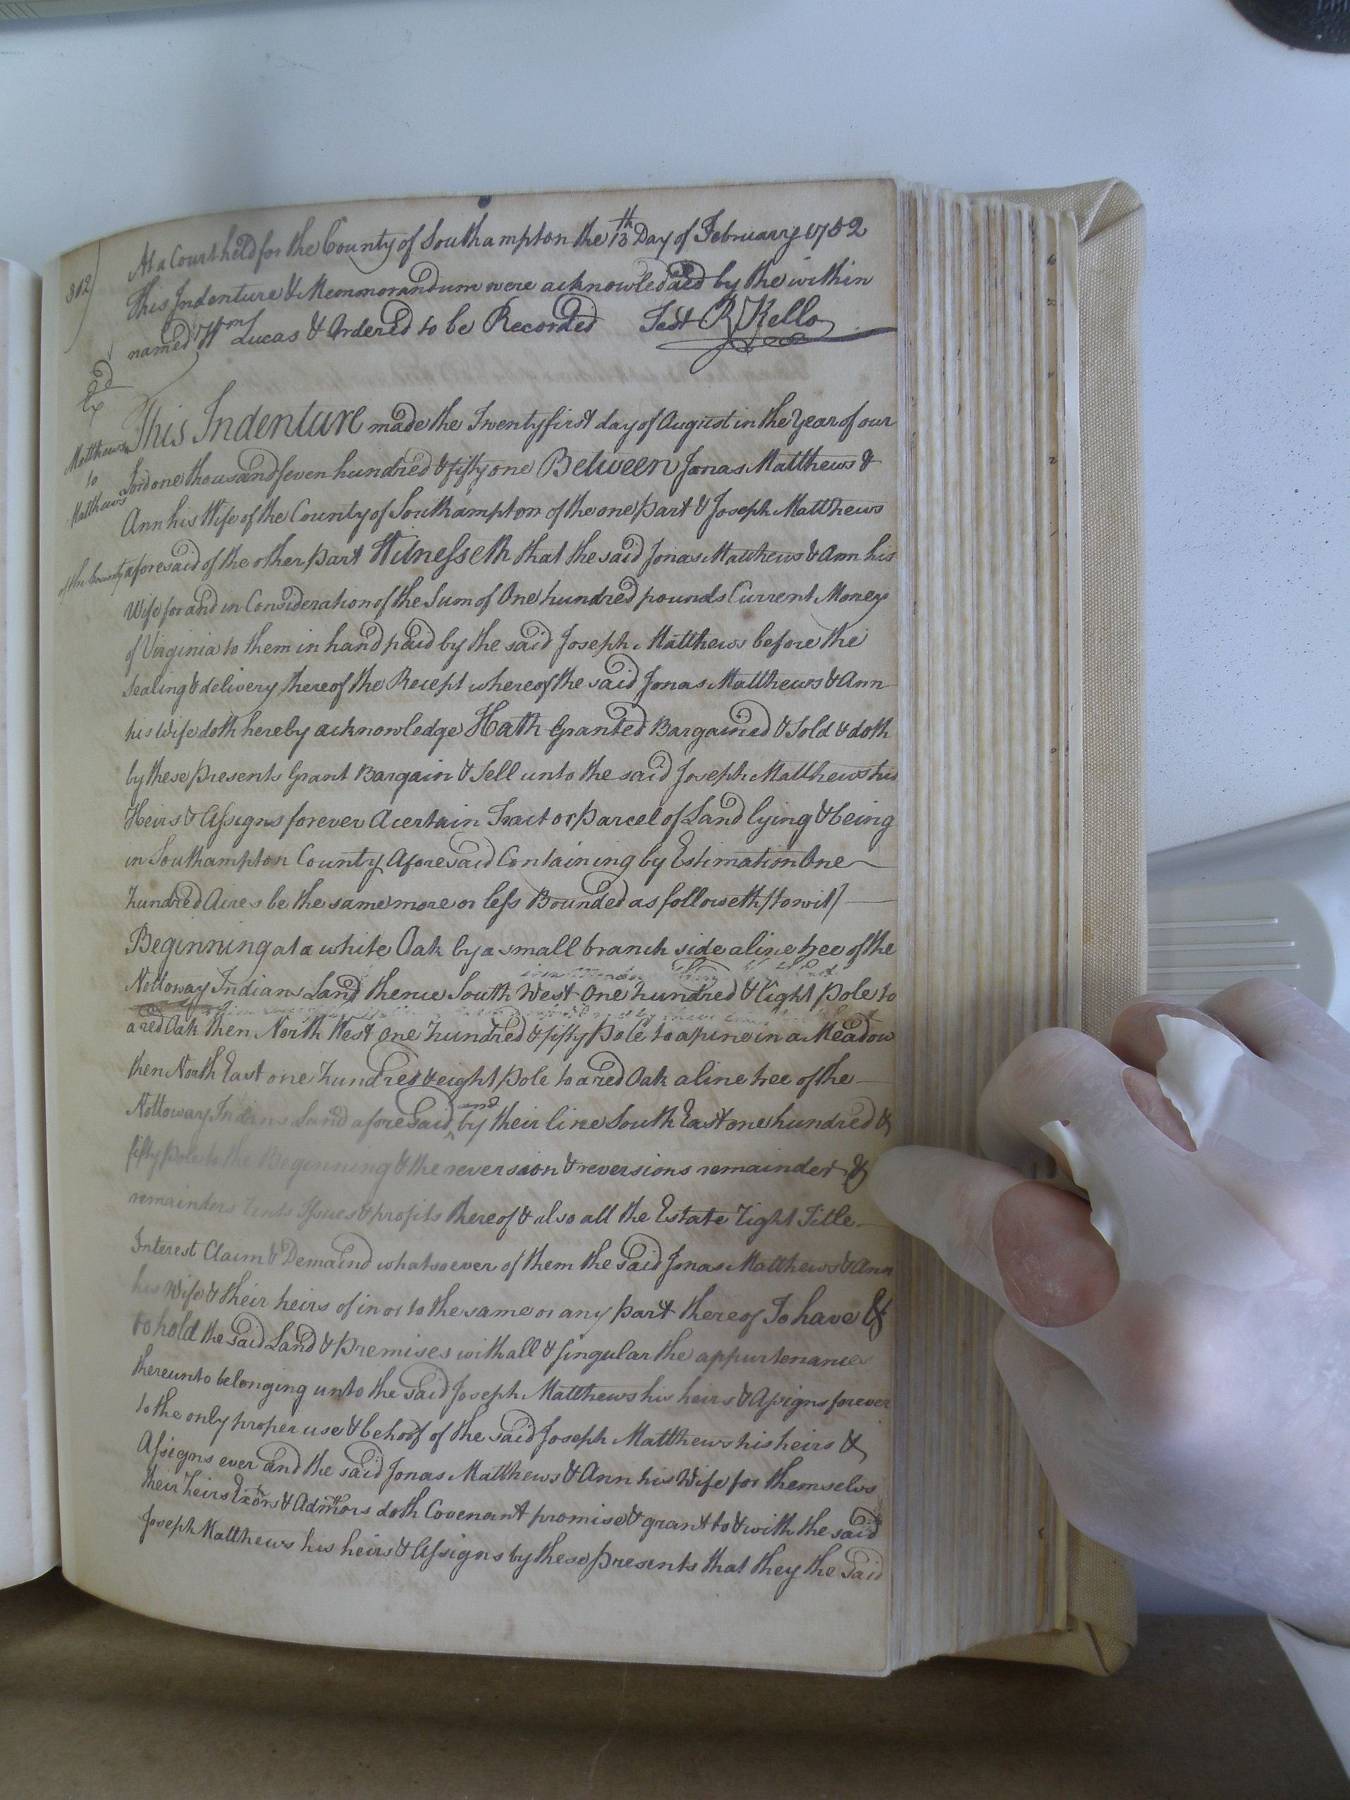 312
At a Court held for the County of Southampton the 13th Day of February 1752
This Indenture & Memmorandum were acknowledged by the within
named Wm Lucas & Ordered to be Recorded Test R Kello
Matthews
to
Matthews
This Indenture made the Twenty first day of August in the Year of our
Lord one thousand seven hundred & fifty one Between Jonas Matthews &
Ann his Wife of the County of Southampton of the one part & Joseph Matthews
of the County aforesaid of the other part Witnesseth that the said Jonas Matthews & Ann his
Wife for and in Consideration of the Sum of One hundred pounds Current Money
of Virginia to them in hand paid by the said Joseph Matthews before the
Sealing & delivery thereof the Recept whereof the said Jonas Matthews & Ann
his Wife doth hereby acknowledge Hath Granted Bargained & Sold & doth
by these presents Grant Bargain & Sell unto the said Joseph Matthews his
Heirs & Assigns forever A certain Tract or parcel of Land lying & being
in Southampton County Aforesaid Containing by Estimation One
hundred Acres be the same more or less Bounded as followeth to wit
Beginning at a white Oak by a small branch side a line tree of the
Nottoway Indians Land thence South West One hundred & Eight pole to
a red Oak then North West one hundred & fifty pole to a pine in a Meadow
then North East one hundred & eight pole to a red Oak a line tree of the
Nottoway Indians Land aforesaid and by their line South East one hundred &
fifty pole to the Beginning & the reversion & reversions remainder &
remainders rents Issues & profits thereof & also all the Estate right Title
Interest Claim & Demaind whatsoever of them the said Jonas Matthews & Ann
his Wife & their heirs of in or to the same or any part thereof To have &
to hold the said Land & premises with all & singular the appurtenances
thereunto belonging unto the said Joseph Matthews his heirs & Assigns forever
to the only proper use & behoof of the said Joseph Matthews his heirs &
Assigns ever and the said Jonas Matthews & Ann his Wife for themselvs
their heirs Exors & Admors doth Covenant promise & grant to & with the said
Joseph Matthews his heirs & Assigns by these presents that they the said